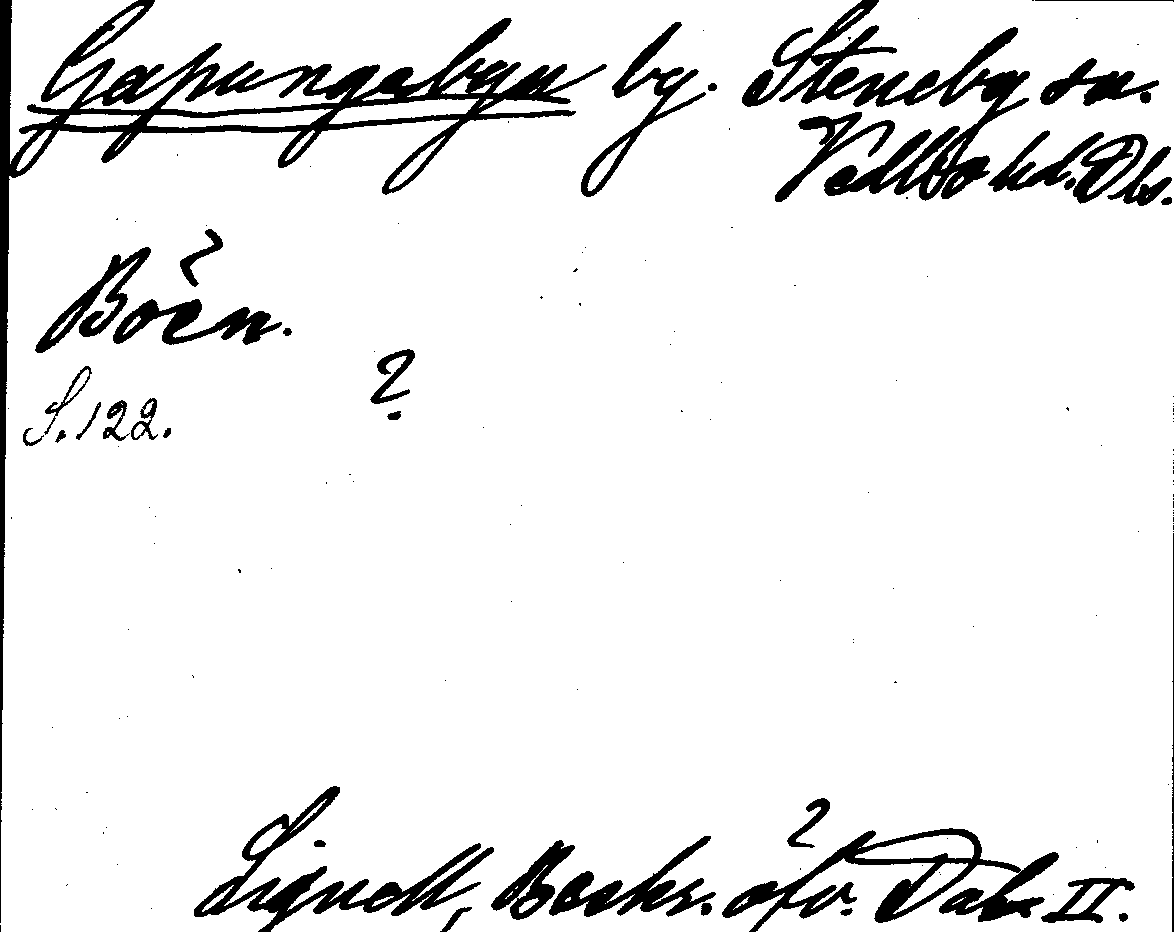 Gapungebyn by. Steneby sn.
Vedbo hd. Dls.
Boen.
?
S. 122.
Lignell, Beskr. öfv. Dal. II.